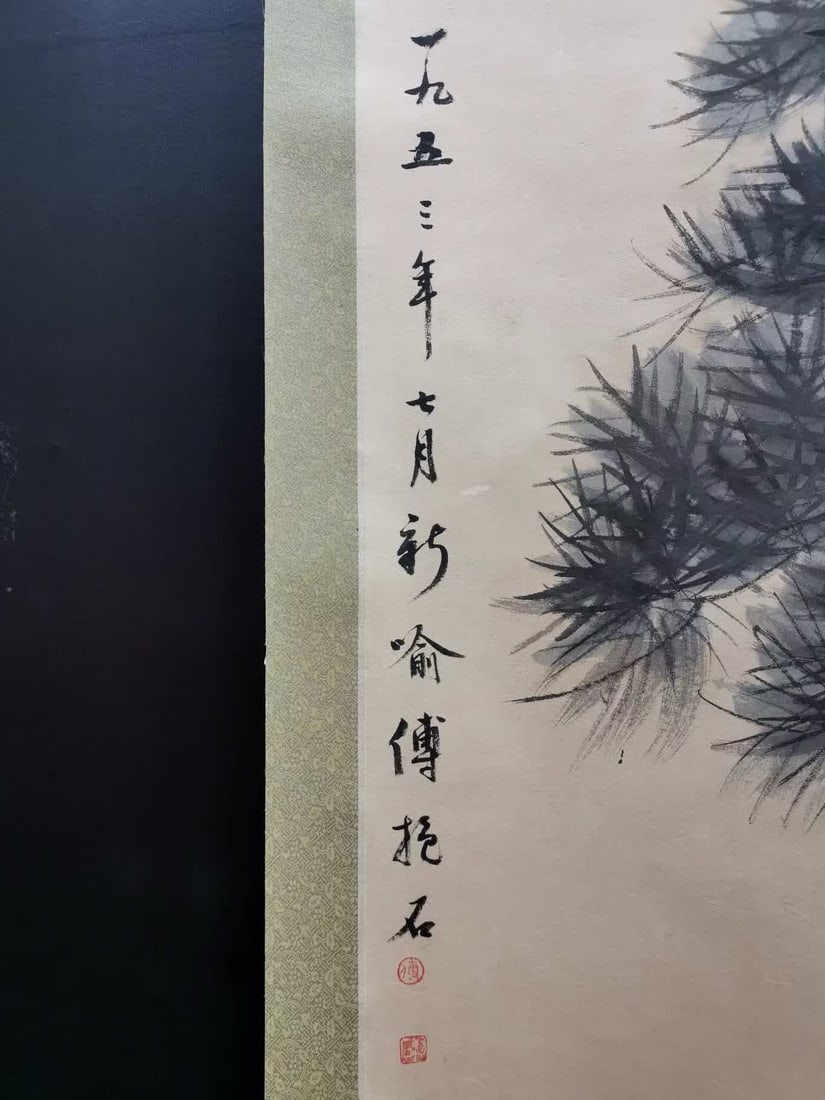 一九五三年七月新喻傅抱石
傅